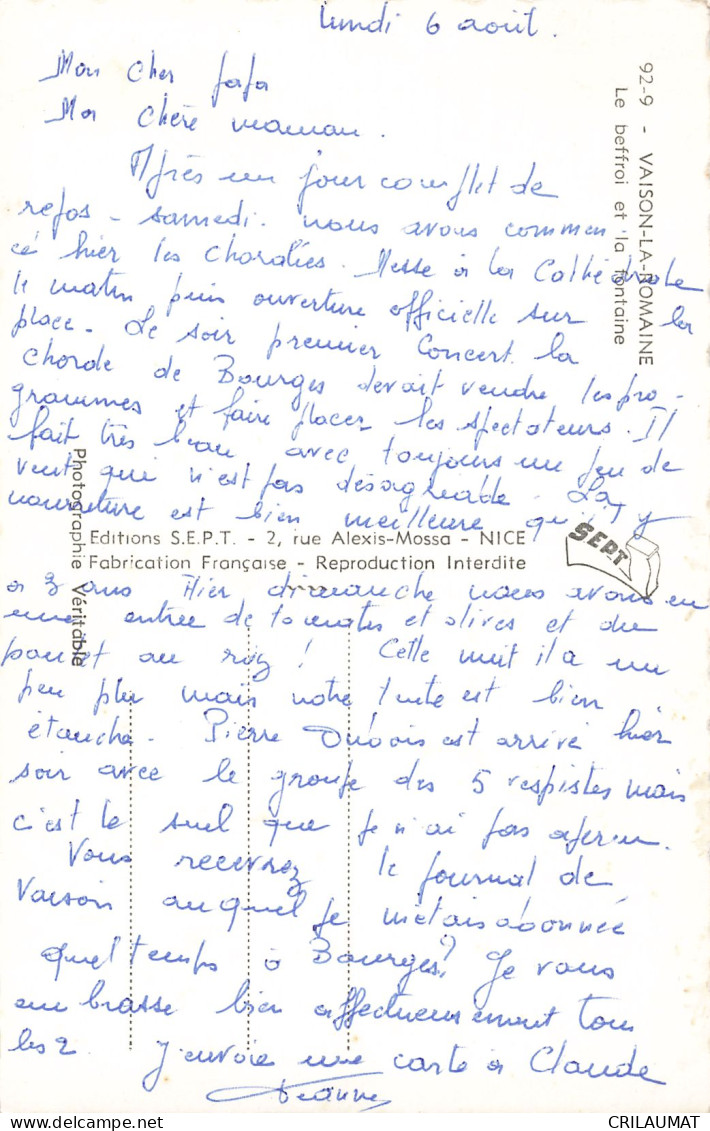 lundi 6 août.
Mon Cher papa
Ma Chère maman.
Après un jour complet de
repos - samedi. nous avons commen
cé hier les Choralies. Messe à la Cathédrale
le matin puis ouverture officielle sur la
place. Le soir premier Concert. la
Chorale de Bourges devait vendre les pro-
grammes et faire placer les spectateurs. Il
fait très beau avec toujours un peu de
vent qui n'est pas désagréable. La
nourriture est bien meilleure qu'il y
a 3 ans Hier dimanche nous avons eu
une entrée de tomates et olives et du
poulet au riz ! Cette nuit il a un
peu plu mais notre tente est bien
étanche. Pierre Dubois est arrivé hier
soir avec le groupe des 5 vespistes mais
c'est le seul que je n'ai pas aperçu.
Vous recevrez le journal de
Vaison auquel je m'étais abonnée
Quel temps à Bourges? Je vous
embrasse bien affectueusement tous
les 2. J'envoie une carte à Claude
Jeanne
92-9 - VAISON-LA-ROMAINE
Le beffroi et la fontaine
Photographie Véritable
Editions S.E.P.T. - 2, rue Alexis-Mossa - NICE
Fabrication Française - Reproduction Interdite
SEPT
CRILAUMAT